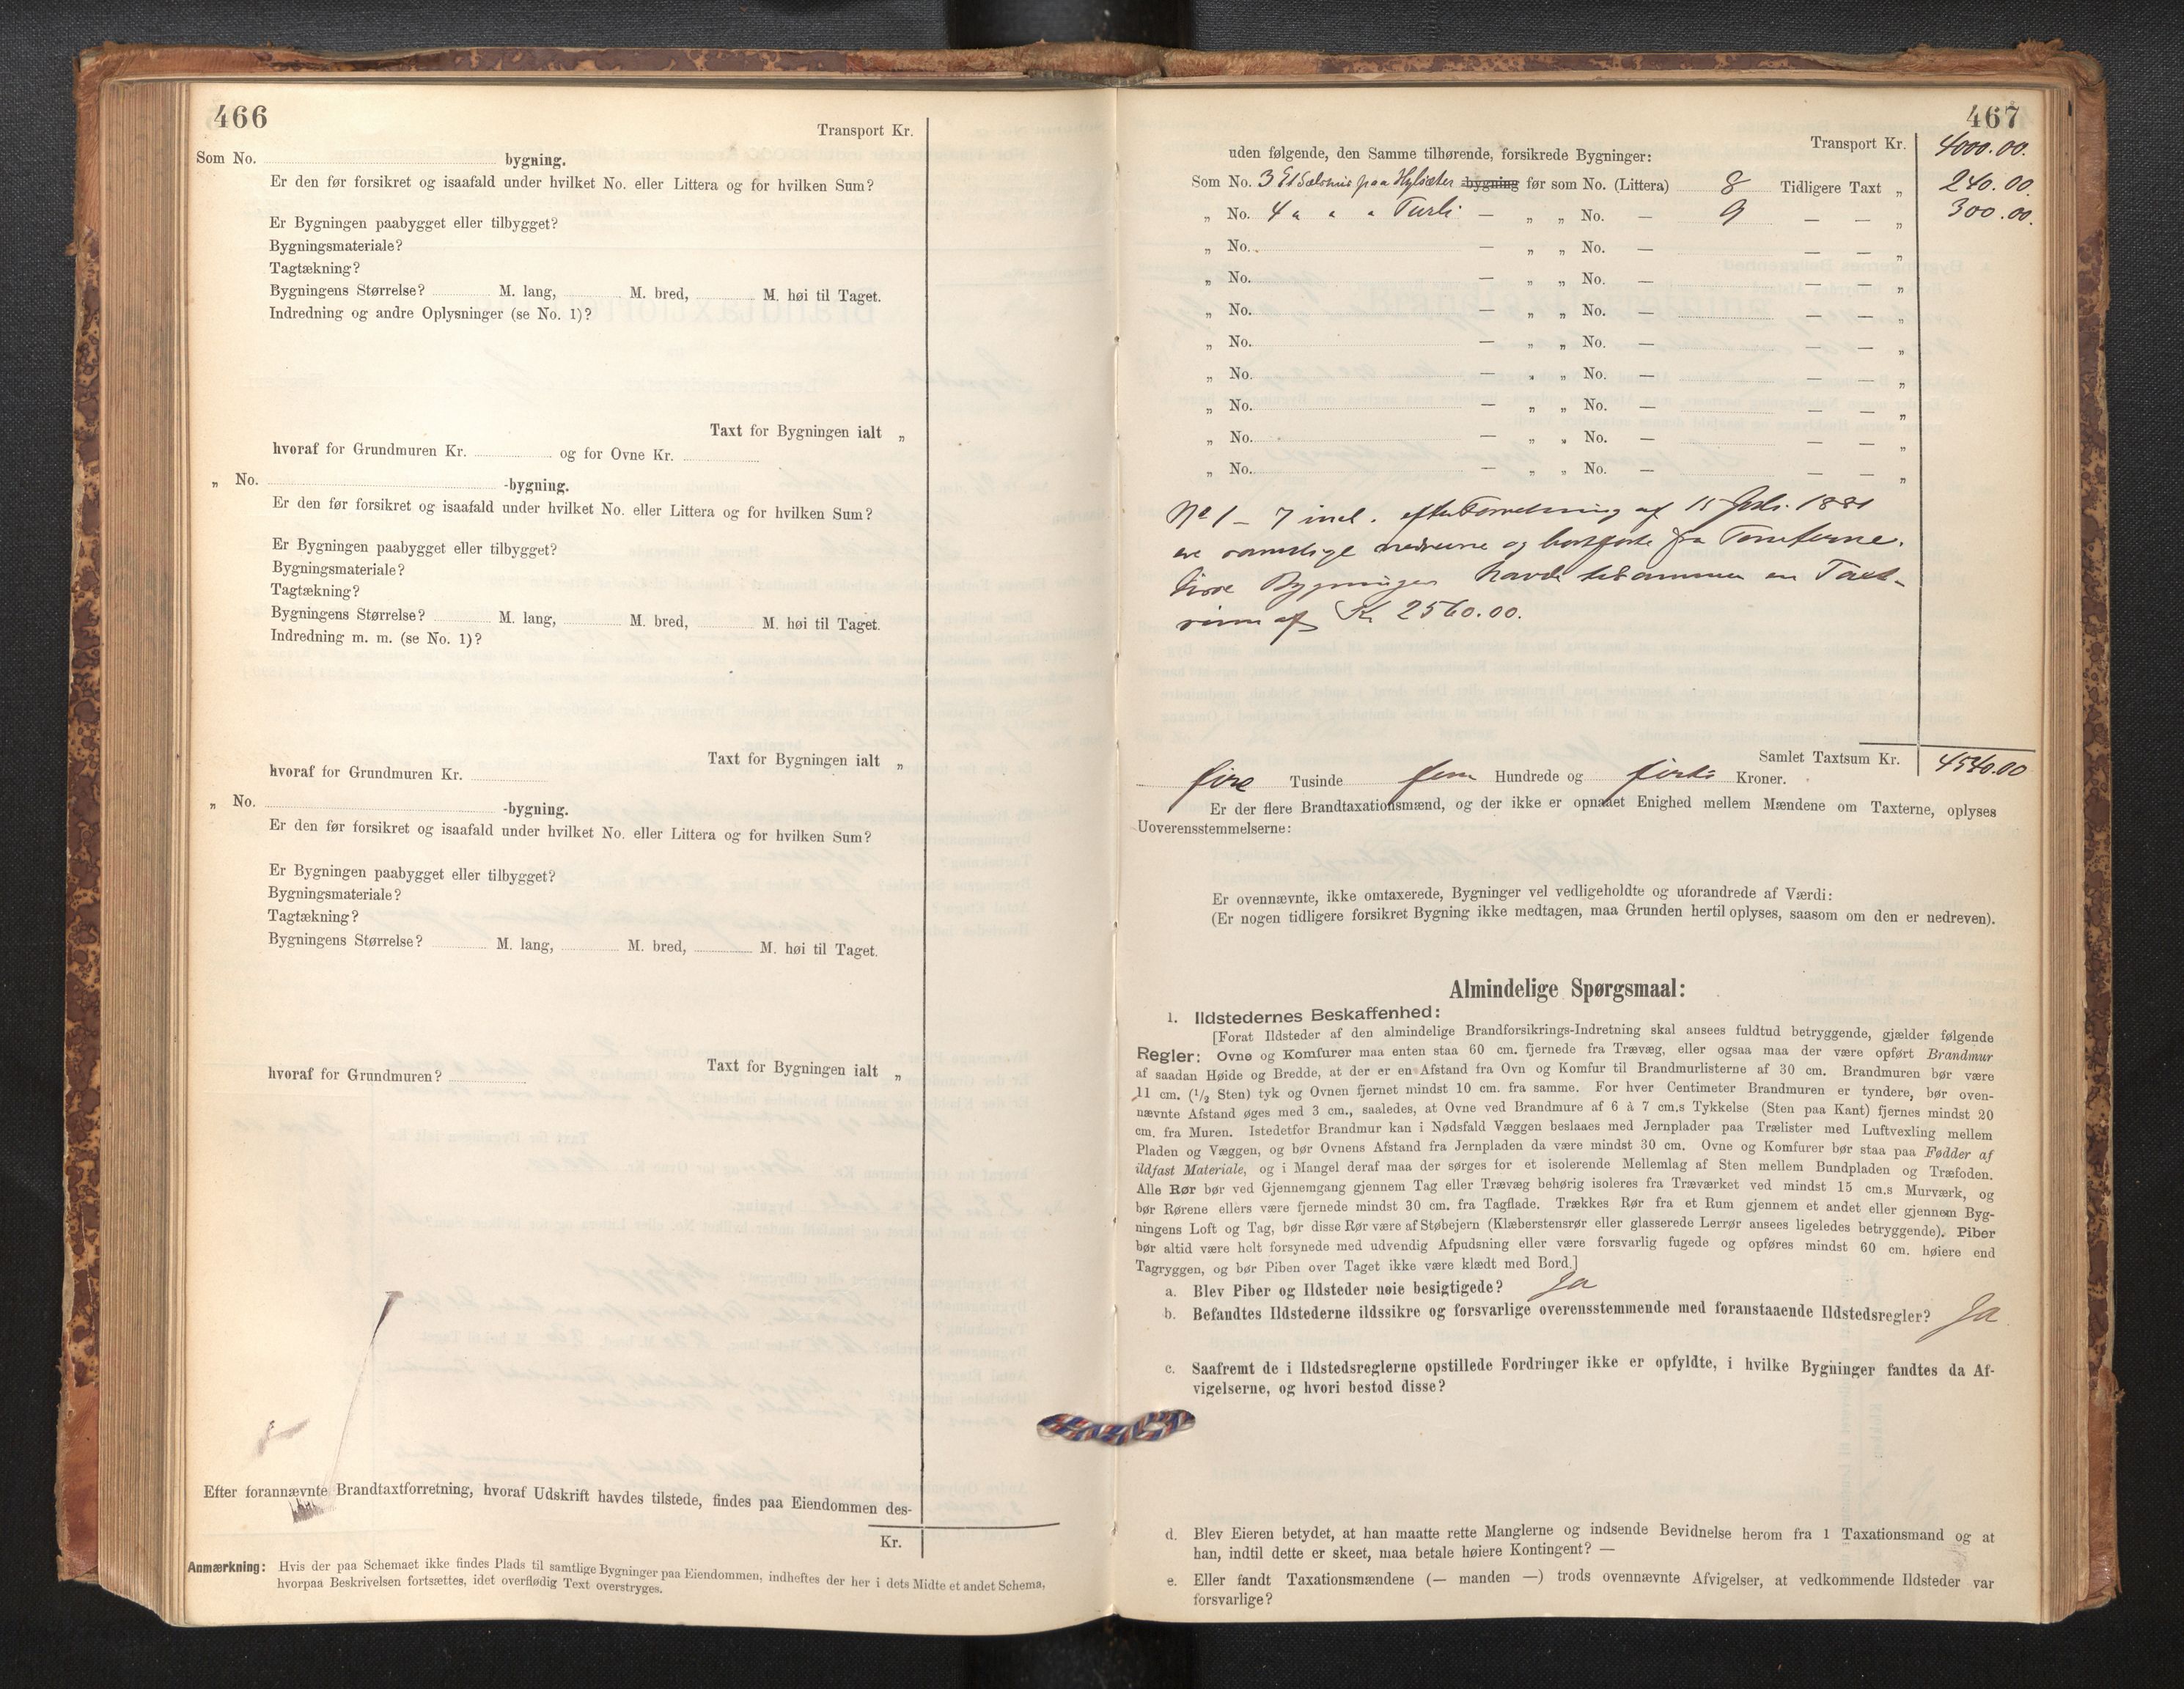 466
Transport Kr.
Som No. bygning.
Er den før forsikret og isaafald under hvilket No. eller Littera og for hvilken Sum?
Er Bygningen paabygget eller tilbygget?
Bygningsmateriale?
Tagtækning?
Bygningens Størrelse? M. lang, M. bred, M. høi til Taget.
Indredning og andre Oplysninger (se No. 1)?
Taxt for Bygningen ialt „
hvoraf for Grundmuren Kr. og for Ovne Kr.
„ No. -bygning.
Er den før forsikret og isaafald under hvilket No. eller Littera og for hvilken Sum?
Er Bygningen paabygget eller tilbygget?
Bygningsmateriale?
Tagtækning?
Bygningens Størrelse? M. lang, M. bred, M. høi til Taget.
Indredning m. m. (se No. 1)?
Taxt for Bygningen ialt „
hvoraf for Grundmuren Kr.
„ No. -bygning.
Er den før forsikret og isaafald under hvilket No. eller Littera og for hvilken Sum?
Er Bygningen paabygget eller tilbygget?
Bygningsmateriale?
Tagtækning?
Bygningens Størrelse? M. lang, M. bred, M. høi til Taget.
Taxt for Bygningen ialt „
hvoraf for Grundmuren?
Efter forannævnte Brandtaxtforretning, hvoraf Udskrift havdes tilstede, findes paa Eiendommen des-
Kr.
Anmærkning: Hvis der paa Schemaet ikke findes Plads til samtlige Bygninger paa Eiendommen, indheftes der her i dets Midte et andet Schema,
hvorpaa Beskrivelsen fortsættes, idet overflødig Text overstryges.
467
Transport Kr. 4000.00.
uden følgende, den Samme tilhørende, forsikrede Bygninger:
Som No. 3 Et Sælshus paa Hylsæter bygning før som No. (Littera) 8 Tidligere Taxt „ 240.00.
„ No. 4 " " " Turli — „ „ No. — 9 — — „ 300.00.
„ No. — „ „ No. — — — „
„ No. — „ „ No. — — — „
„ No. — „ „ No. — — — „
„ No. — „ „ No. — — — „
„ No. — „ „ No. — — — „
„ No. — „ „ No. — — — „
„ No. — „ „ No. — — — „
„ No. — „ „ No. — — — „
No 1 – 7 incl. efter Forretning af 15 1881
ere samtlige nedrevne og bortførte fra Tomterne.
Disse Bygninger havde tilsammen en Taxt-
sum af Kr 2560.00.
Samlet Taxtsum Kr. 4540.00
fire Tusinde fem Hundrede og firti Kroner.
Er der flere Brandtaxationsmænd, og der ikke er opnaaet Enighed mellem Mændene om Taxterne, oplyses
Uoverensstemmelserne:
Er ovennævnte, ikke omtaxerede, Bygninger vel vedligeholdte og uforandrede af Værdi:
(Er nogen tidligere forsikret Bygning ikke medtagen, maa Grunden hertil oplyses, saasom om den er nedreven).
Almindelige Spørgsmaal:
1. Ildstedernes Beskaffenhed:
[Forat Ildsteder af den almindelige Brandforsikrings-Indretning skal ansees fuldtud betryggende, gjælder følgende
Regler: Ovne og Komfurer maa enten staa 60 cm. fjernede fra Trævæg, eller ogsaa maa der være opført Brandmur
af saadan Høide og Bredde, at der er en Afstand fra Ovn og Komfur til Brandmurlisterne af 30 cm. Brandmuren bør være
11 cm. (1/2 Sten) tyk og Ovnen fjernet mindst 10 cm. fra samme. For hver Centimeter Brandmuren er tyndere, bør oven-
nævnte Afstand øges med 3 cm., saaledes, at Ovne ved Brandmure af 6 à 7 cm.s Tykkelse (Sten paa Kant) fjernes mindst 20
cm. fra Muren. Istedetfor Brandmur kan i Nødsfald Væggen beslaaes med Jernplader paa Trælister med Luftvexling mellem
Pladen og Væggen, og bør Ovnens Afstand fra Jernpladen da være mindst 30 cm. Ovne og Komfurer bør staa paa Fødder af
ildfast Materiale, og i Mangel deraf maa der sørges for et isolerende Mellemlag af Sten mellem Bundpladen og Træfoden.
Alle Rør bør ved Gjennemgang gjennem Tag eller Trævæg behørig isoleres fra Træværket ved mindst 15 cm.s Murværk, og
bør Rørene ellers være fjernede mindst 30 cm. fra Tagflade. Trækkes Rør fra et Rum gjennem et andet eller gjennem Byg-
ningens Loft og Tag, bør disse Rør være af Støbejern (Klæberstensrør eller glasserede Lerrør ansees ligeledes betryggende). Piber
bør altid være holt forsynede med udvendig Afpudsning eller være forsvarlig fugede og opføres mindst 60 cm. høiere end
Tagryggen, og bør Piben over Taget ikke være klædt med Bord.]
a. Blev Piber og Ildsteder nøie besigtigede? Ja
b. Befandtes Ildstederne ildssikre og forsvarlige overensstemmende med foranstaaende Ildstedsregler? Ja
c. Saafremt de i Ildstedsreglerne opstillede Fordringer ikke er opfyldte, i hvilke Bygninger fandtes da Af-
vigelserne, og hvori bestod disse?
d. Blev Eieren betydet, at han maatte rette Manglerne og indsende Bevidnelse herom fra 1 Taxationsmand og at
han, indtil dette er skeet, maa betale høiere Kontingent? —
e. Eller fandt Taxationsmændene (— manden —) trods ovennævnte Afvigelser, at vedkommende Ildsteder var
forsvarlige?